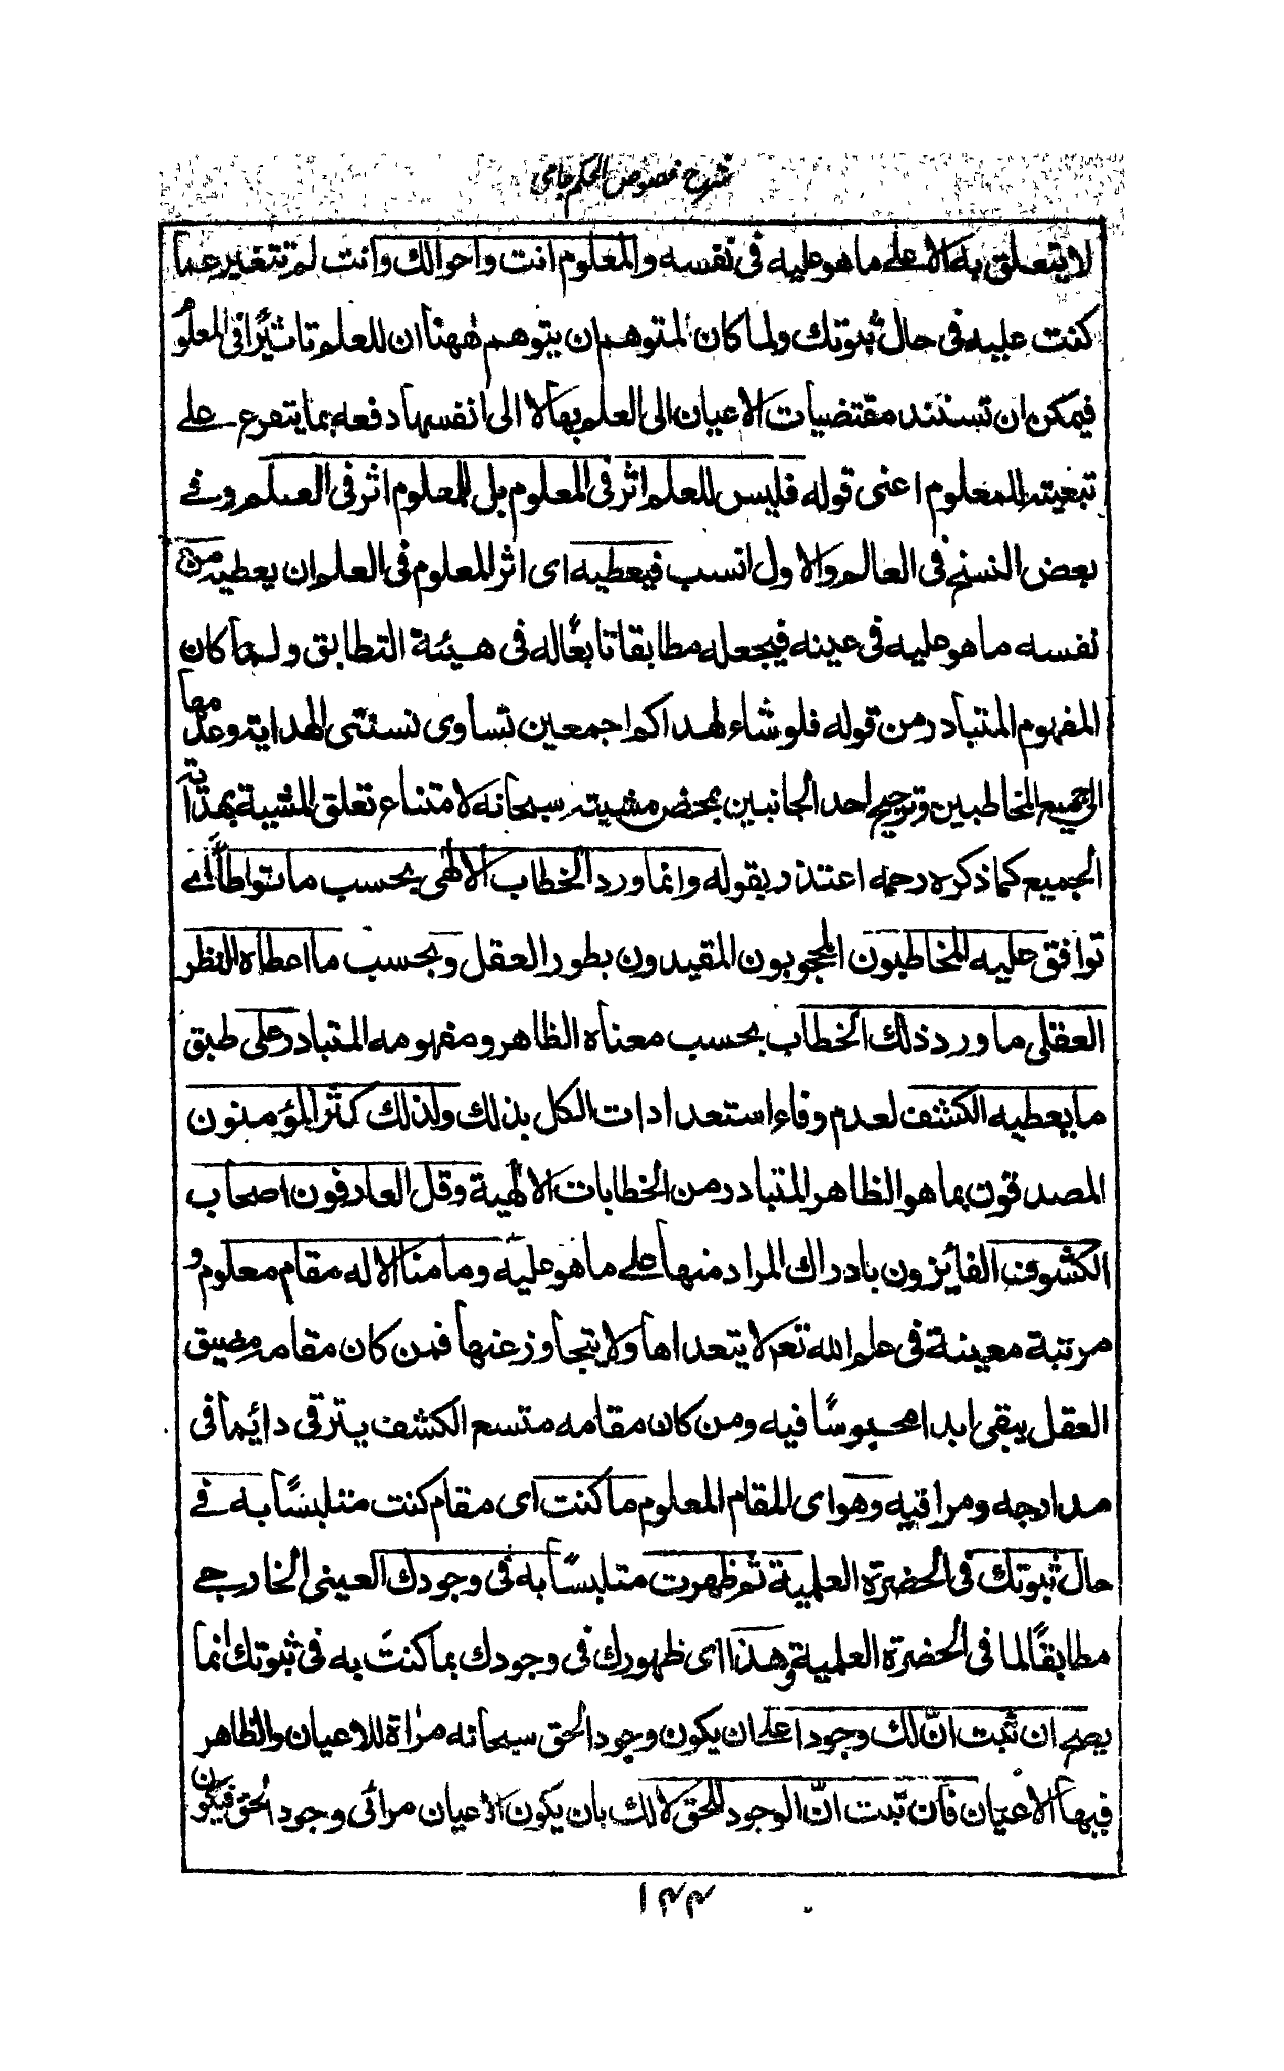 شرح فصوص الحكم جامى
لا يتعلق به الا على ما هو عليه فى نفسه والمعلوم انت واحوالك وانت لم تتغير عما
كنت عليه فى حال ثبوتك ولما كان لمتوهم ان يتوهم ههنا ان للعلم تاثيرًا فى المعلوم
فيمكن ان تستند مقتضيات الاعيان الى العلم بها لا الى انفسها دفعه بما يتفرع على
تبعيته للمعلوم اعنى قوله فليس للعلم اثر فى المعلوم بل للمعلوم اثر فى العلم وفے
بعض النسخ فى العالم والاول انسب فيعطيه اى اثر المعلوم فى العلم ان يعطيه من
نفسه ما هو عليه فى عينه فيجعله مطابقا تابعًا له فى هيئة التطابق ولما كان
المفهوم المتبادر من قوله فلو شاء لهداكم اجمعين تساوى نسبتى الهداية وعدمها
الى جميع المخاطبين وترجيح احد الجانبين بمحض مشيته سبحانه لامتناع تعلق المشية بهداية
الجميع كما ذكره رحمه اعتذر بقوله وانما ورد الخطاب الالهى بحسب ما تواطأ اے
توافق عليه المخاطبون المحجوبون المقيدون بطور العقل وبحسب ما اعطاه النظر
العقلى ما ورد ذلك الخطاب بحسب معناه الظاهر ومفهومه المتبادر على طبق
ما يعطيه الكشف لعدم وفاء استعدادات الكل بذلك ولذلك كثر المؤمنون
المصدقون بما هو الظاهر المتبادر من الخطابات الالهية وقل العارفون اصحاب
الكشوف الفائزون بادراك المراد منها على ما هو عليه وما منا الا له مقام معلوم و
مرتبة معينة فى علم الله تعر لا يتعداها ولا يتجاوز عنها فمن كان مقامه مضيق
العقل يبقى ابدا محبوسًا فيه ومن كان مقامه متسع الكشف يترقى دائما فى
مدارجه ومراقيه وهو اى المقام المعلوم ما كنت اى مقام كنت متلبسًا به فے
حال ثبوتك فى الحضرة العلمية ثم ظهرت متلبسًا به فى وجودك العينى الخارجے
مطابقًا لما فى الحضرة العلمية وهذا اى ظهورك فى وجودك بما كنتَ به فى ثبوتك انما
يصح ان ثبت انّ لك وجودا على ان يكون وجود الحق سبحانه مرٰاة للاعيان والظاهر
فيها الاعيان فان ثبت انّ الوجود للحق لا لك بان يكون الاعيان مرائى وجود الحق فيكون
١٤٤